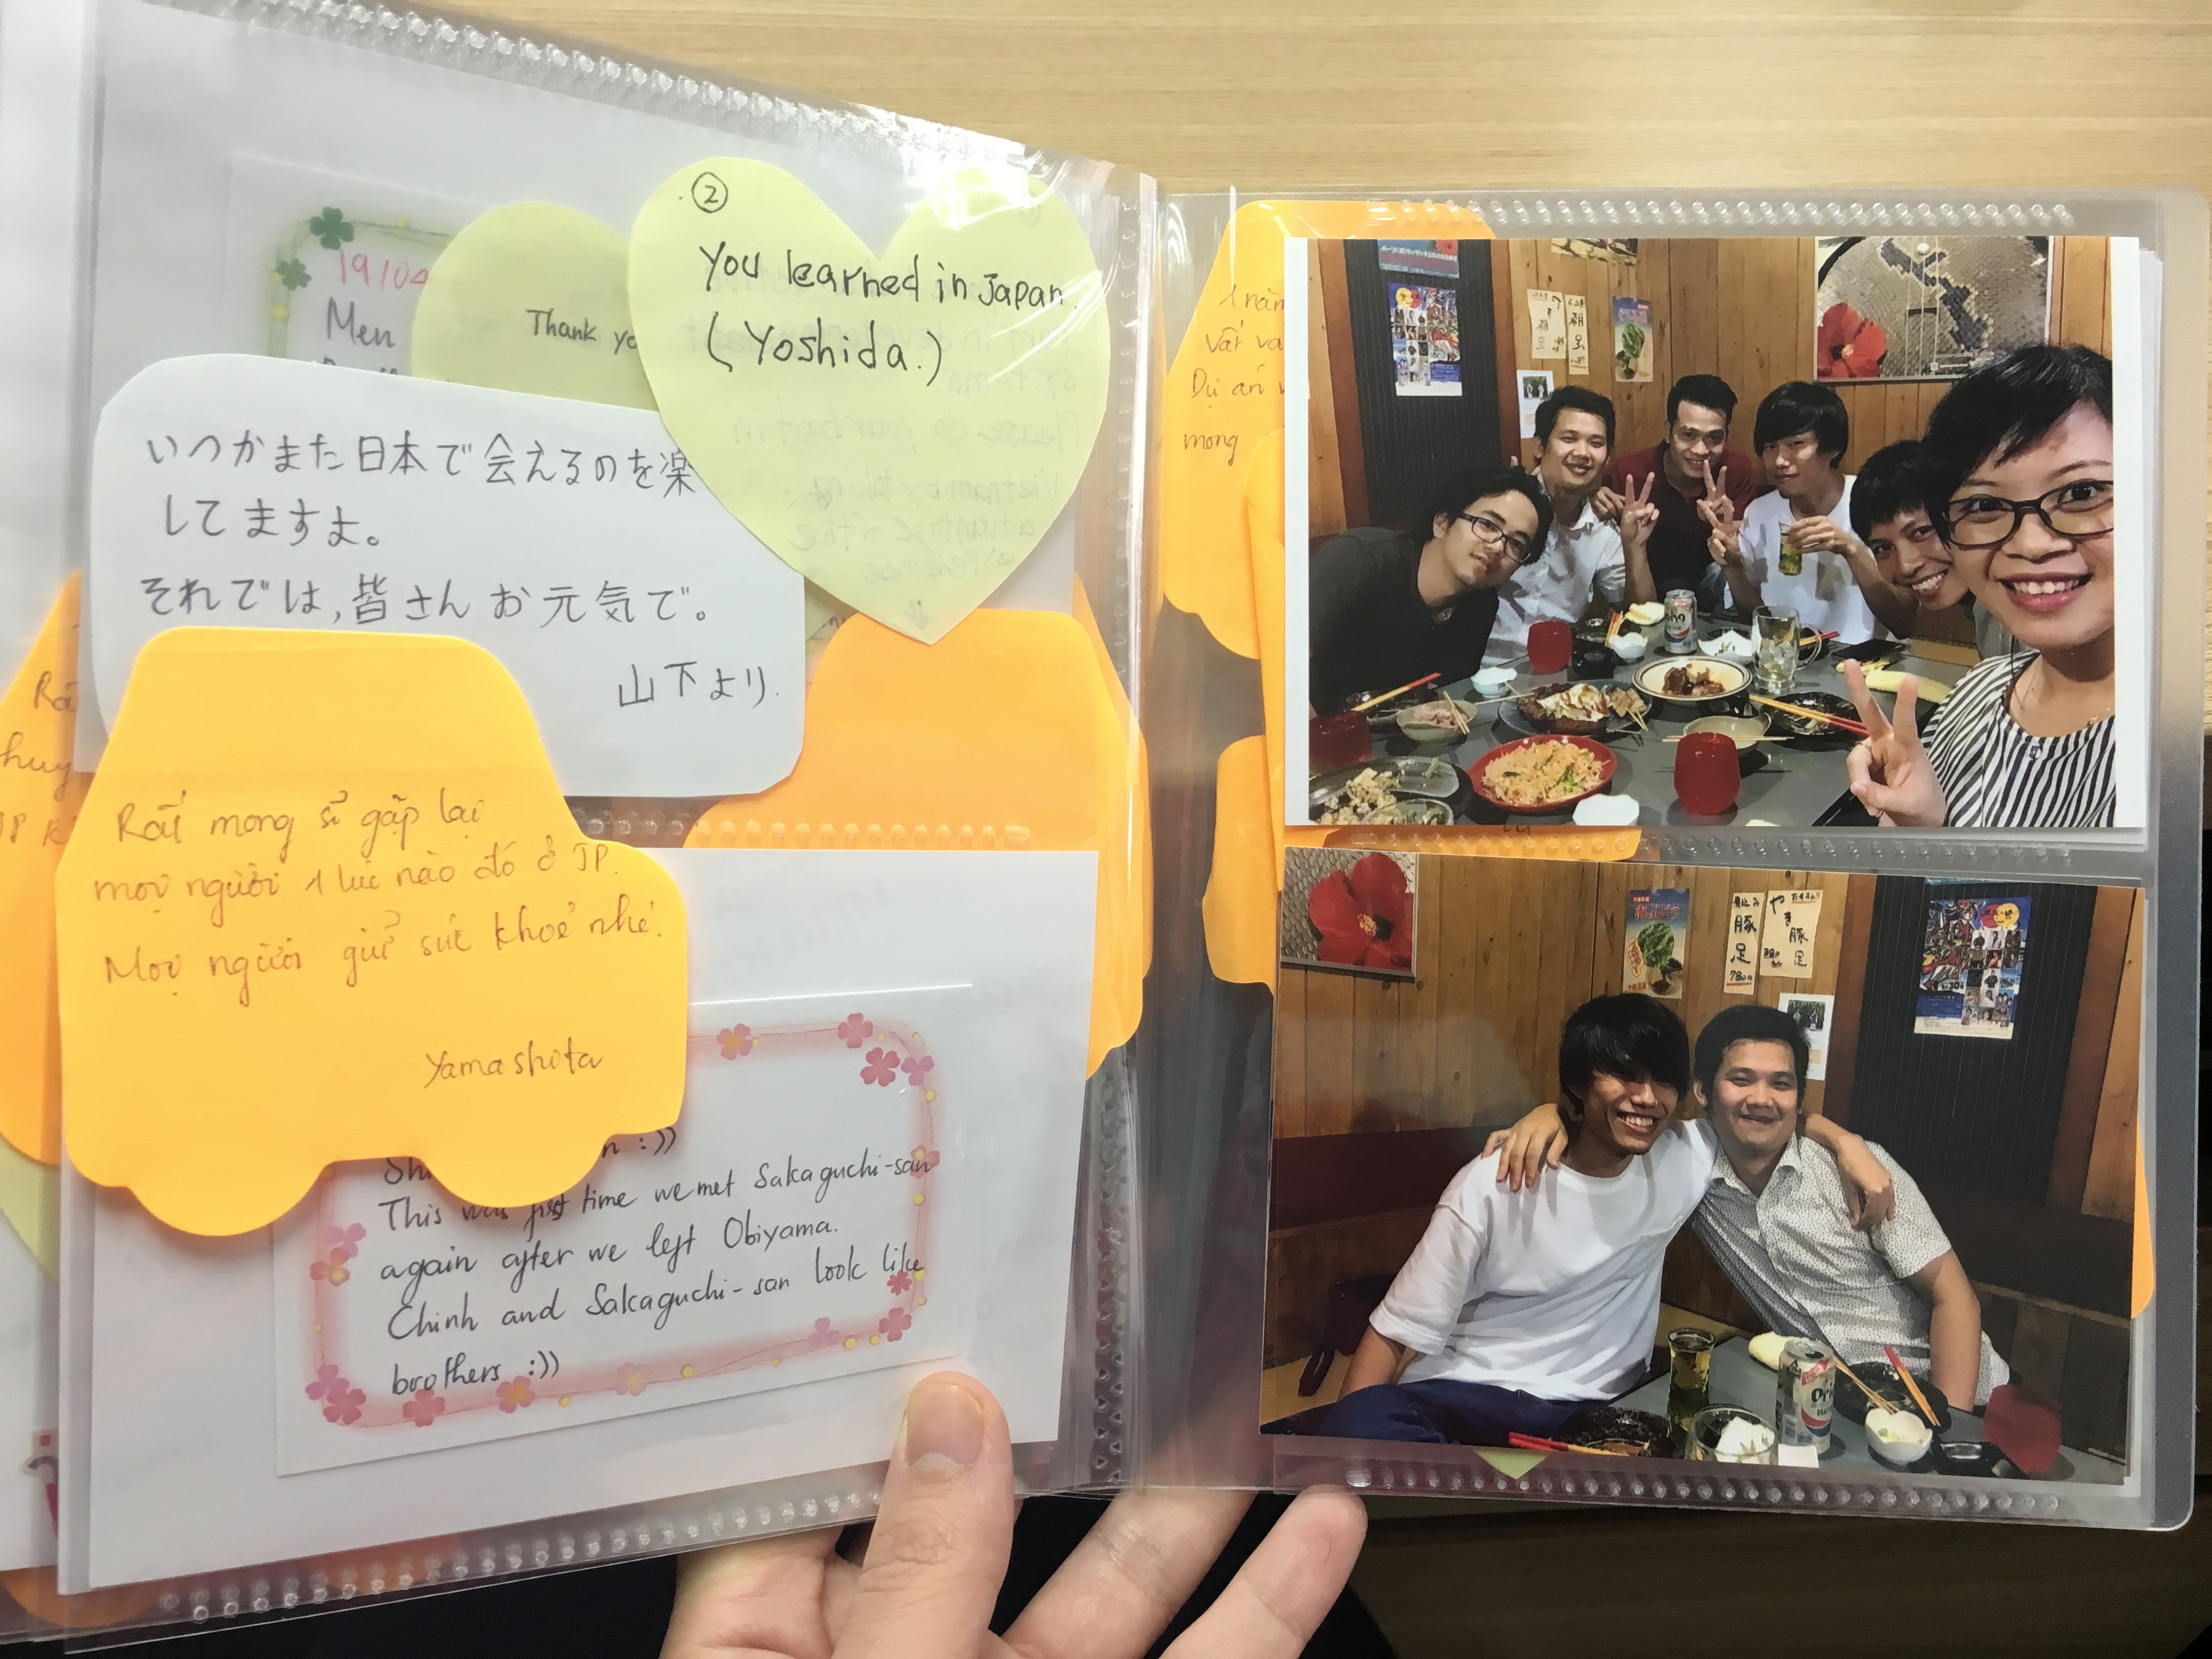 19/04
Men
Thank yo
②
You learned in Japan.
(Yoshida.)
いつかまた日本で会えるのを楽
してますよ。
それでは,皆さんお元気で。
山下より.
Rất mong sĩ gặp lại
mọi người 1 lúc nào đó ở JP.
Mọi người giữ sức khoẻ nhé.
Yamashita
n :))
This was first time we met Sakaguchi-san
again after we left Obiyama.
Chinh and Sakaguchi-san look like
brothers :))
Rấ
huy
1 năm
Vất vả
Dự án
mong
煮込み
豚足
780円
やき豚足